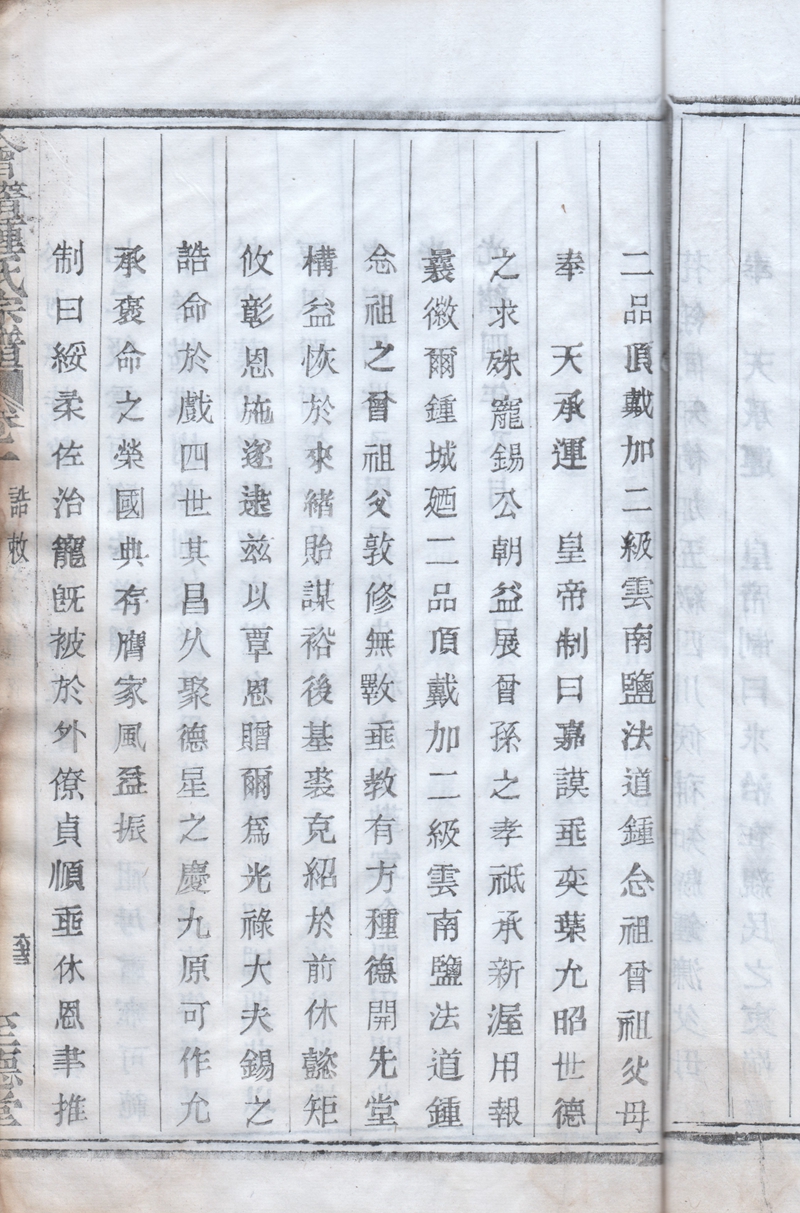 二品頂戴加二級雲南鹽法道鍾念祖曾祖父母
奉　天承運　皇帝制曰嘉謨垂奕葉允昭世德
之求殊寵錫公朝益展曾孫之孝祗承新渥用報
曩徽爾鍾城廼二品頂戴加二級雲南鹽法道鍾
念祖之曾祖父敦修無斁垂教有方種德開先堂
構益恢於來緒貽謀裕後基裘克紹於前休懿矩
攸彰恩施遂逮兹以覃恩贈爾爲光祿大夫錫之
誥命於戲四世其昌乆聚德星之慶九原可作允
承褒命之榮國典存膺家風益振
制曰綏柔佐治寵旣被於外僚貞順垂休恩聿推
鍾氏宗譜　卷一　誥敕　至德堂